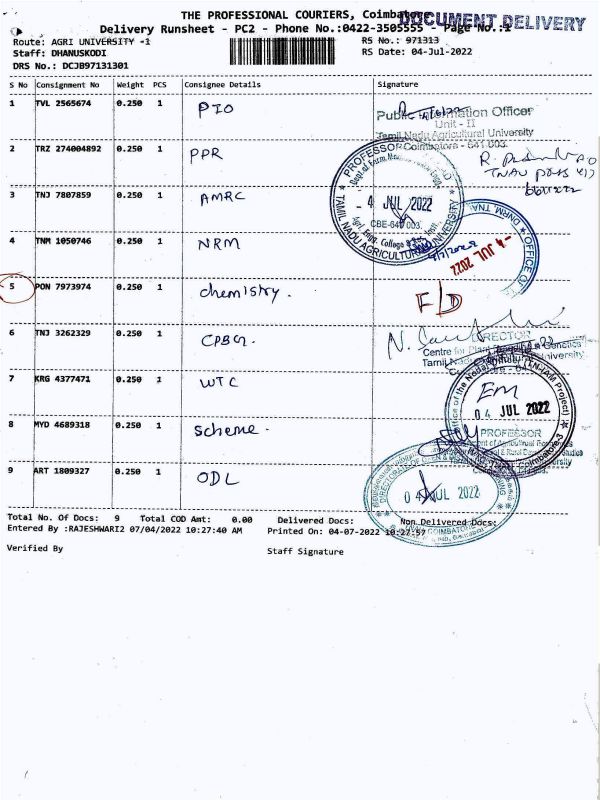 THE PROFESSIONAL COURIERS, Coimbatore
DOCUMENT DELIVERY
Delivery Runsheet - PC2 - Phone No.:0422-3505555 - Page No.:1
Route: AGRI UNIVERSITY -1
RS No.: 971313
Staff: DHANUSKODI
RS Date: 04-Jul-2022
DRS No.: DCJB97131301
S No Consignment No Weight PCS Consignee Details Signature
1 TVL 2565674 0.250 1 PIO
Public Information Officer
Unit - II
Tamil Nadu Agricultural University
Coimbatore - 641 003.
2 TRZ 274004892 0.250 1 PPR
PROFESSOR
- 4 JUL 2022
CBE-641 003.
Agri. Engg. College
TAMIL NADU AGRICULTURAL UNIVERSITY
3 TNJ 7807859 0.250 1 AMRC
4 TNM 1050746 0.250 1 NRM
4/7/2022
- 4 JUL 2022
5 PON 7973974 0.250 1 chemistry.
F/D
6 TNJ 3262329 0.250 1 CPBG.
DIRECTOR
Centre for Plant Breeding & Genetics
7 KRG 4377471 0.250 1 WTC
Office of the Nodal Officer (TNIAM Project)
Em
04 JUL 2022
8 MYD 4689318 0.250 1 Scheme.
PROFESSOR
9 ART 1809327 0.250 1 ODL
04 JUL 2022
Total No. Of Docs: 9 Total COD Amt: 0.00 Delivered Docs: Non Delivered Docs:
Entered By :RAJESHWARI2 07/04/2022 10:27:40 AM Printed On: 04-07-2022 10:27:57
Verified By
Staff Signature